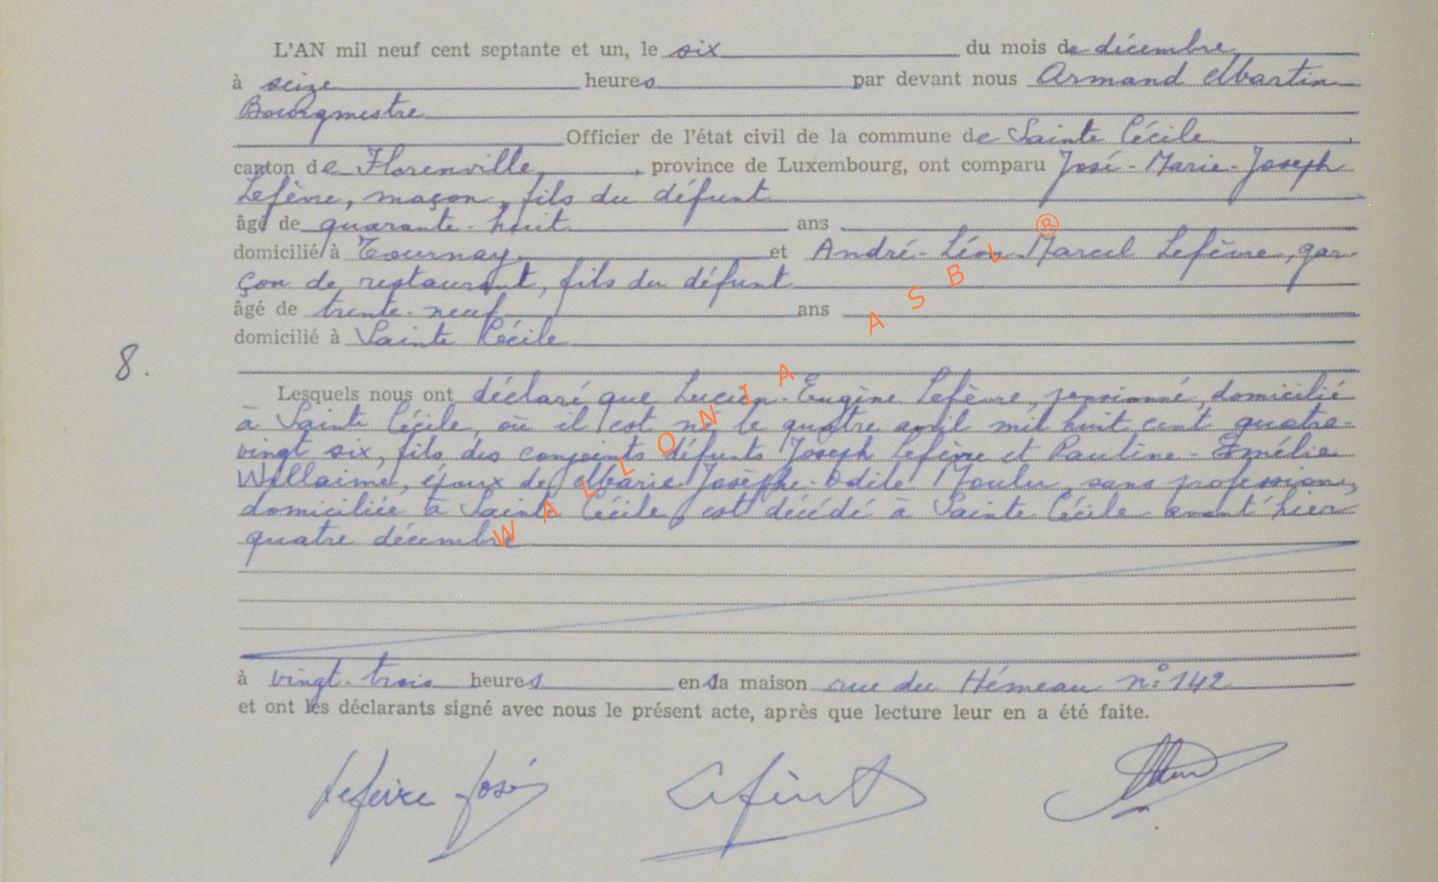 L'AN mil neuf cent septante et un, le six du mois de décembre
à seize heures par devant nous Armand Martin
Bourgmestre
Officier de l'état civil de la commune de Sainte Cécile
canton de Florenville, province de Luxembourg, ont comparu José-Marie-Joseph
Lefèvre, maçon, fils du défunt
âgé de quarante-huit ans
domicilié à Tournay et André-Léon-Marcel Lefèvre, gar-
çon de restaurant, fils du défunt
âgé de trente-neuf ans
domicilié à Sainte Cécile
8.
Lesquels nous ont déclaré que Lucien-Eugène Lefèvre, pensionné, domicilié
à Sainte Cécile, où il est né le quatre avril mil huit cent quatre-
vingt six, fils des conjoints défunts Joseph Lefèvre et Pauline-Emélie
Willaime, époux de Marie-Josèphe-Odile Moulu, sans profession,
domiciliée à Sainte Cécile, est décédé à Sainte Cécile avant hier
quatre décembre
à vingt-trois heures en sa maison rue du Hémeau n° 142
et ont les déclarants signé avec nous le présent acte, après que lecture leur en a été faite.
Lefèvre José
WALLONIA ASBL ®